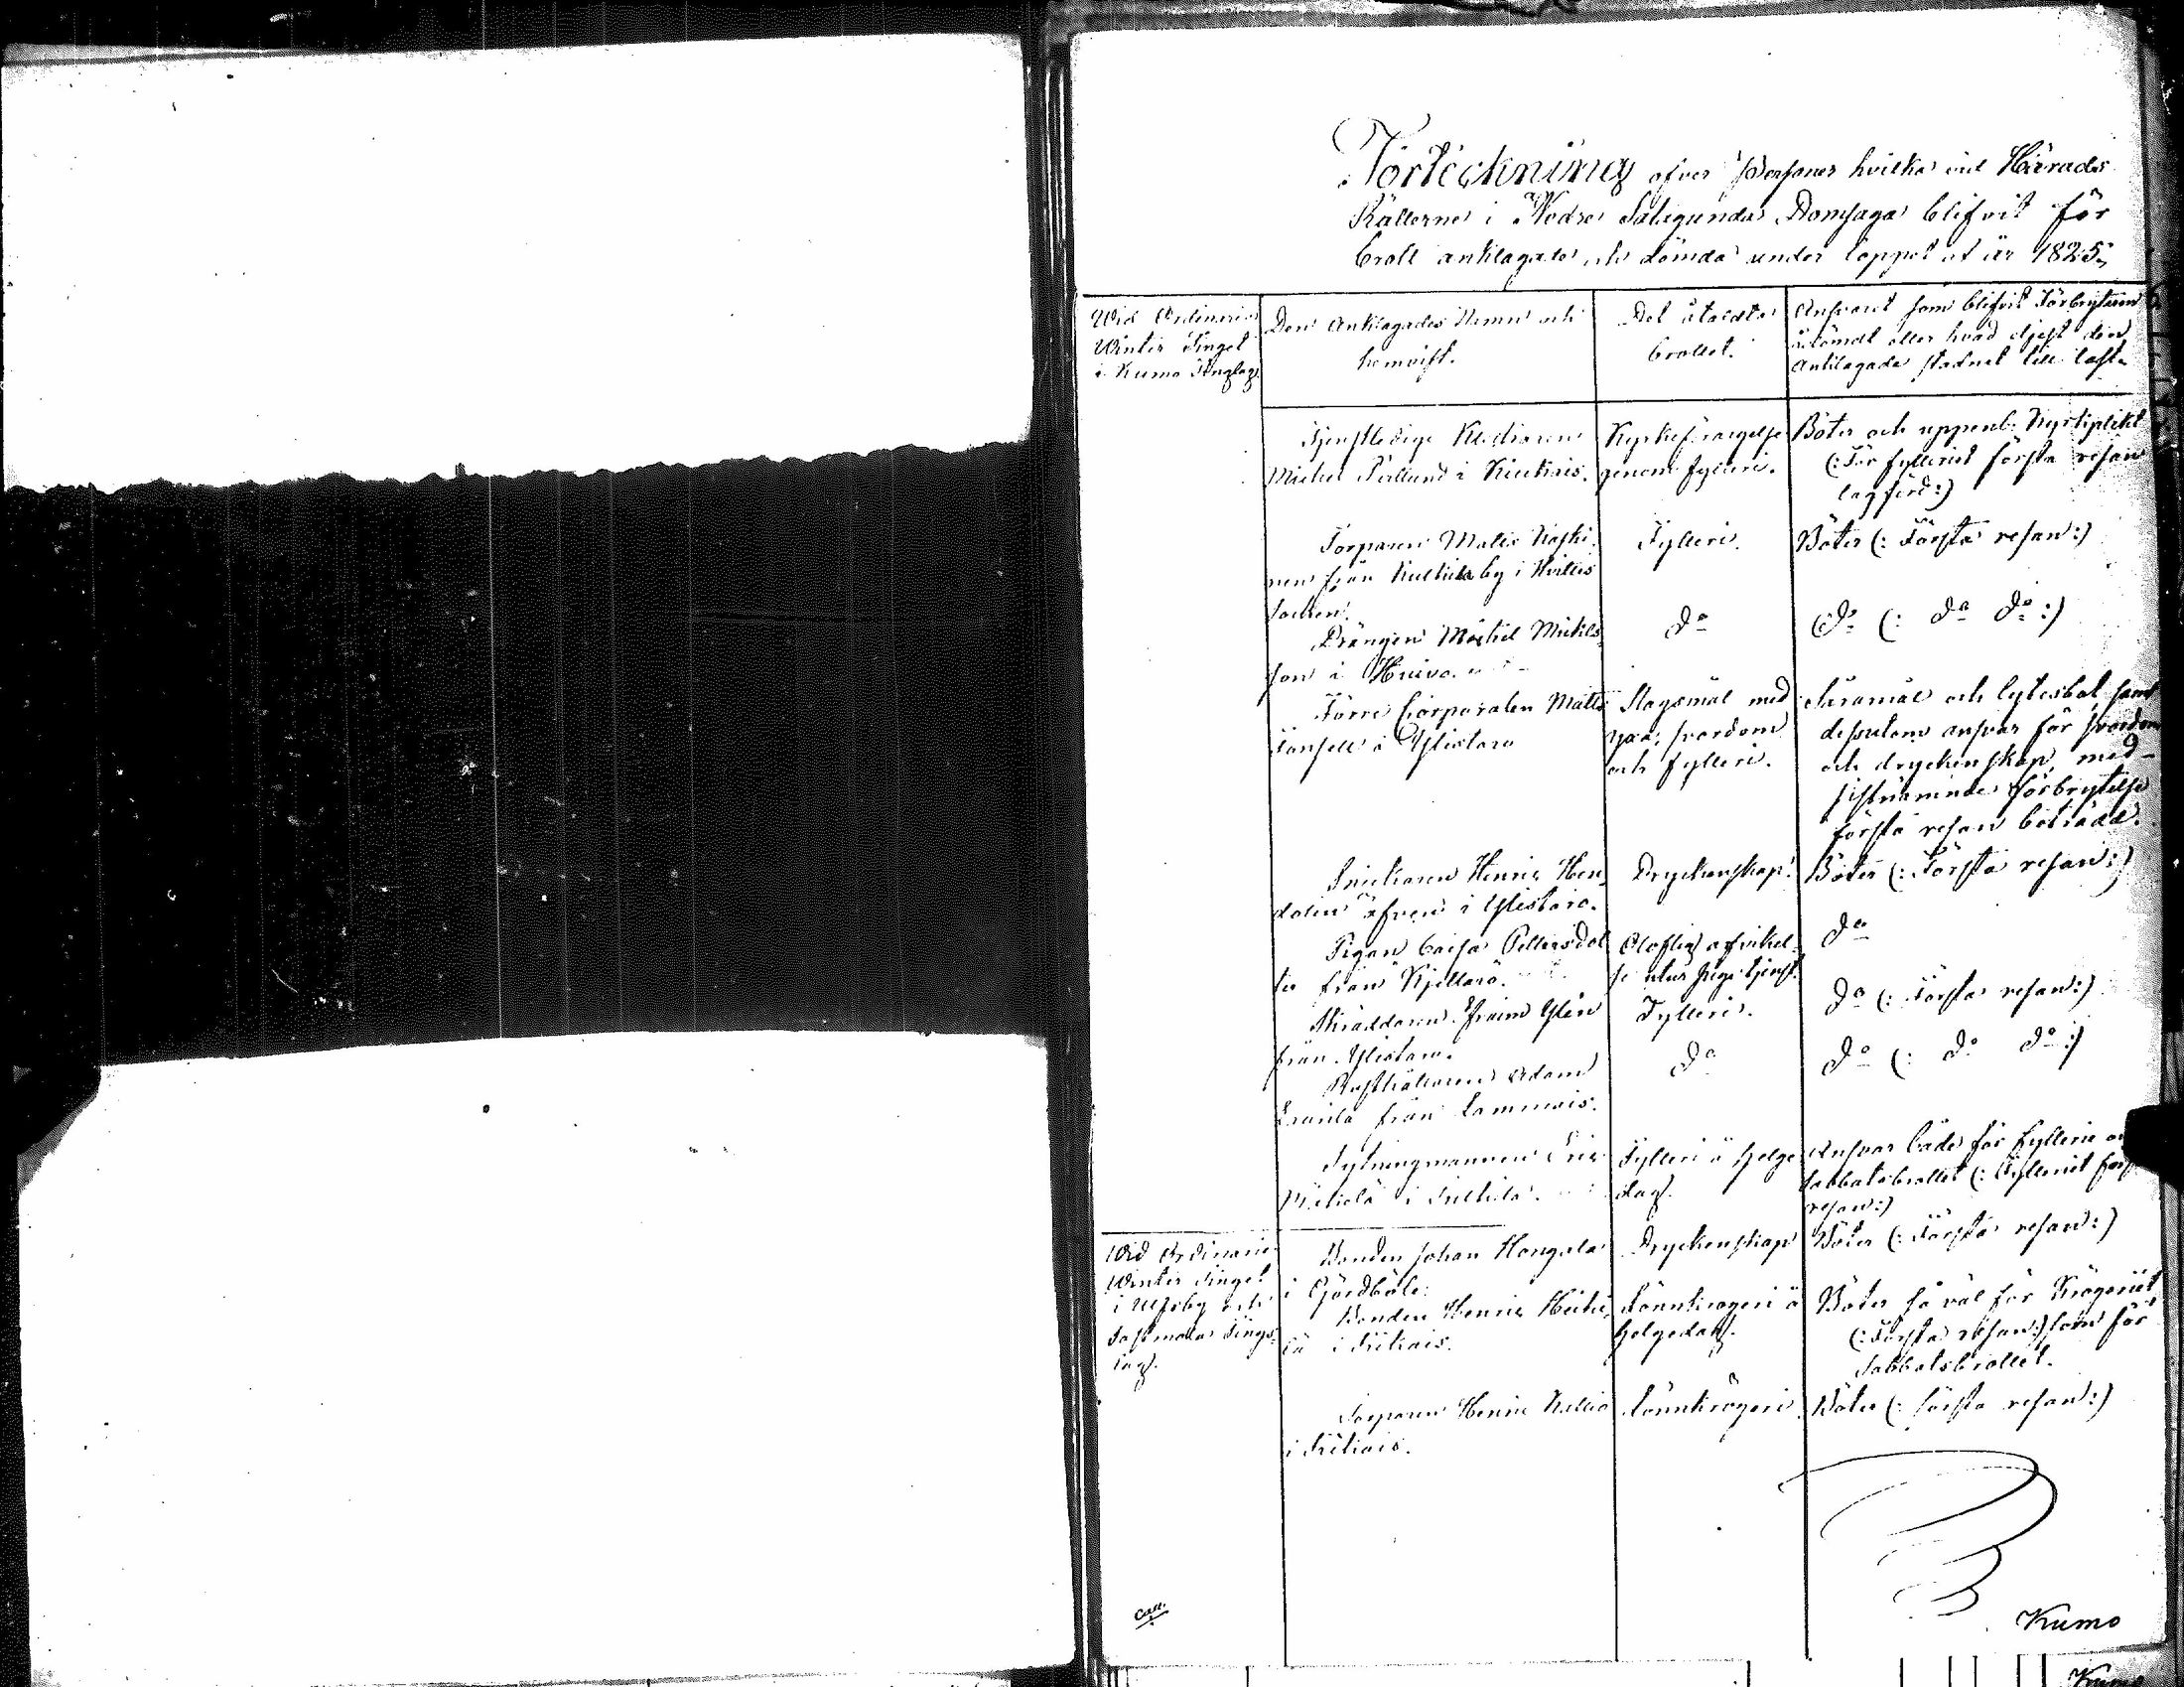 Förteckning öfver Personer hvilka vid Härads
Rätterne i Nedre Satagunda Domsaga blifvit för
brott anklagade och dömda under loppet af år 1825.
Wid Ordinarie
Winter Tinget
i Kumo Tinglag.
Den Anklagades Namn och
hemvist.
Det åtaldta
brottet.
Ansvaret som blifvit Förbrytaren
ådömdt eller hvad eljest den
Anklagade stadnat till last.
Tjenstledige Klockaren
Michel Perllund i Kiukais.
Kyrkoförargelse
genom fylleri.
Böter och uppenb. Kyrkoplikt
(: För fylleriet första resan
lagförd :)
Torparen Matts Koski-
nen från Kulkila by i Hvittis
Socken.
Fylleri.
Böter (: Första resan :)
Drängen Michel Michels-
son i
do
do (: do do :)
Förre Corporalen Matts
i Ylistaro
Slagsmål med
yxa, svordom
och fylleri.
Såramål och lytesbot, samt
dessutom ansvar för svordom
och dryckenskap, med
sistnämnde förbrytelse
första resan beträdd.
Snickaren Henric Hen-
dolin äfven i Ylistaro.
Dryckenskap.
Böter (: Första resan :)
Pigan Caisa Pettersdot-
ter från Kjettarö.
Olaflig afvikel-
se utur årstjenst.
do
Skräddaren Efraim Ylén
från Ylistaro.
Fylleri.
do (: Första resan :)
Rusthållaren Adam
från Lammais.
do
do (: do do :)
Sytningmannen Eric
Mickola i
Fylleri å helge-
dag.
Ansvar både för fylleri
sabbatsbrottet (: Fylleriet
resan :)
Wid Ordinarie
Winter Tinget
i Ulfsby och
Sastmola Tings-
lag.
Bonden Johan Hongala
i Gårdböle.
Dryckenskap
Böter (: Första resan :)
Bonden Henric Heikki-
lä i
Lönnkrögeri å
helgedag.
Böter så väl för Krögeriet
(: Första resan :) som för
Sabbatsbrottet.
Torparen Henric Kallio
i
Lönnkrögeri
Böter (: första resan :)
Coll.
Kumo
Kumo